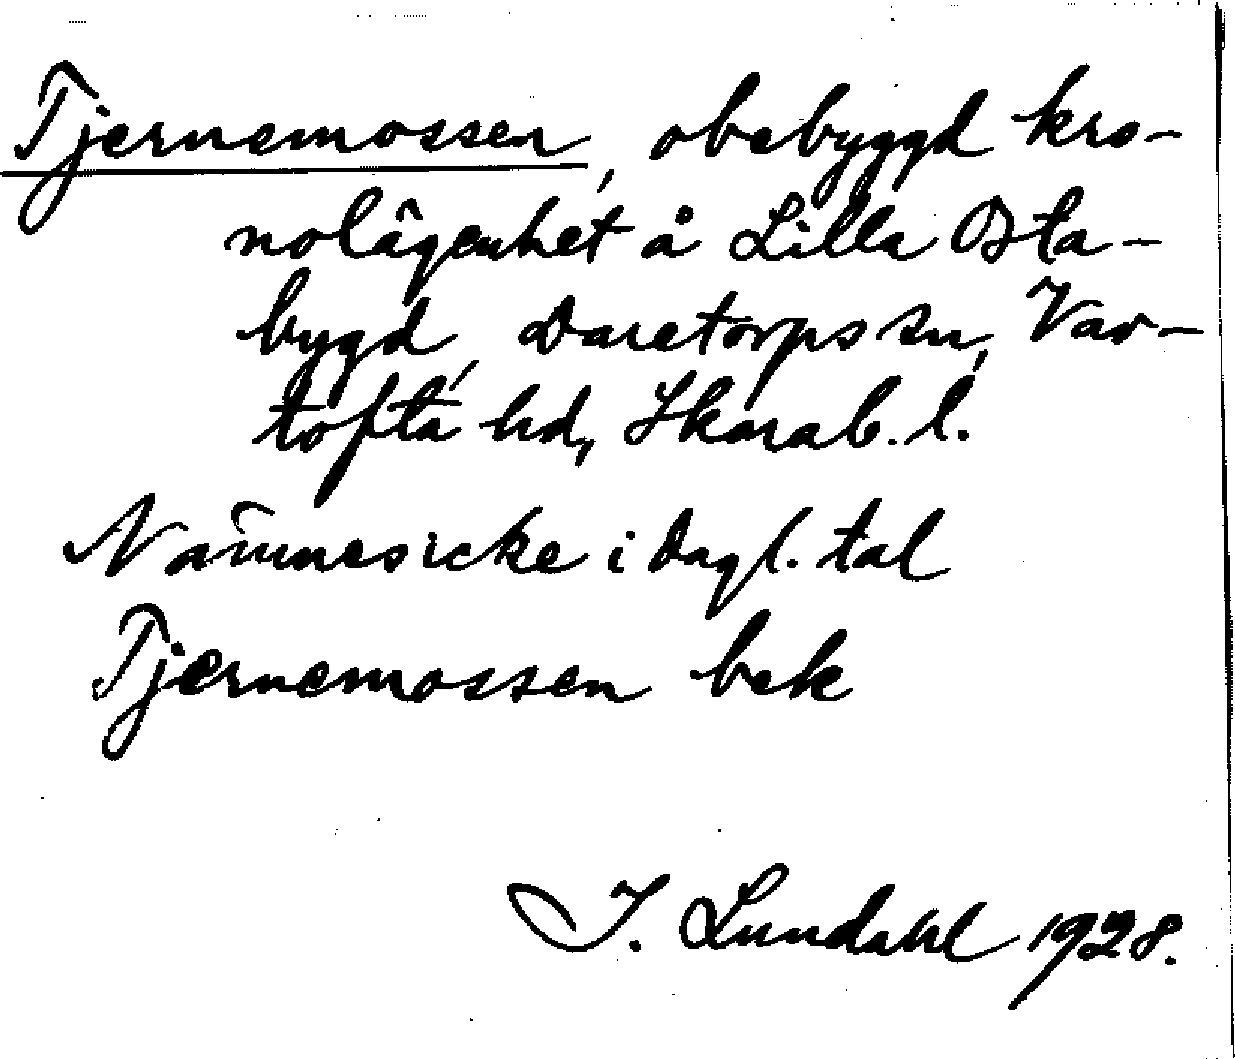 Tjernemossen, obebyggd kro-
nolägenhet å Lilla Bta-
bygd, Daretorps sn, Var-
tofta hd, Skarab. l.
Nämnes icke i dagl. tal
Tjernemossen bek
I. Lundahl 1928.